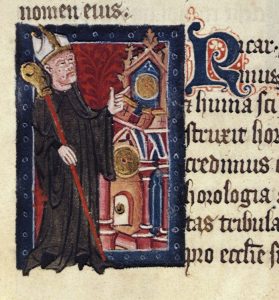 nomen eius.
Ricar
mus
& huma sci
struxit hor
credimus
horologia a
tas tribula
pro ecclie